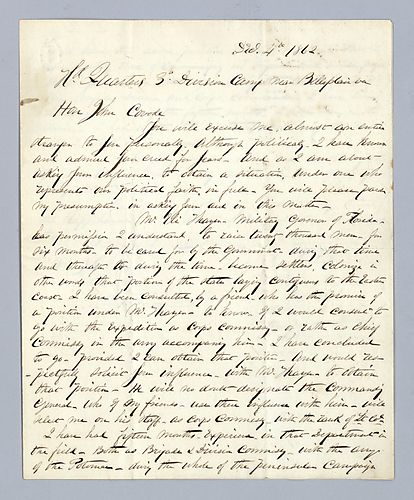 Dec. 4th 1862
Hd Quarters 3d Division Camp near Belleplain Va
Hon John Covode
You will excuse me, almost an entire
stranger to you personally, although politically I have known
and admired your creed for years. And as I am about
asking your influence, to obtain a situation under one who
represents our political faith in full. You will please pardon
my presumption in asking your aid in this matter.
Mr Eli Thayer Military Governor of Florida
has permission I understand, to raise twenty thousand men for
six months to be cared for by the Government during that time
and thereafter to during the time become settlers, colonize in
other words that portion of the state laying contiguous to the Eastern
coast. I have been consulted, by a friend who has the promise of
a position under Mr Thayer, to know if I would consent to
go with the expedition as Corps Commissary or rather as Chief
Commissary in the army accompanying him. I have concluded
to go provided I can obtain that position. And would res-
pectfully solicit your influence with Mr Thayer to obtain
that position. He will no doubt designate the Commanding
General who if my friends use their influence with him will
select me on his staff as Corps Commissary with the rank of Lt Col.
I have had fifteen months experience in that Department in
the field. Both as Brigade & Division Commissary with the army
of the Potomac during the whole of the peninsula Campaign